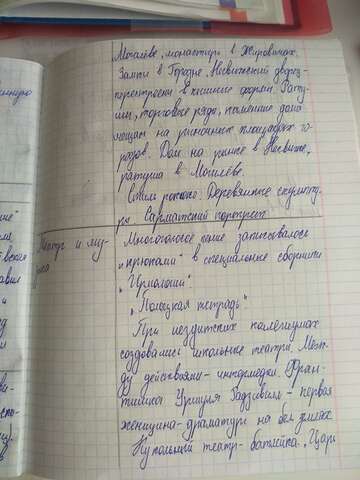 Могилёве, монастыр в Жировичах.
Замки в Городне, Несвижский дворец -
перестроены в пышные формы. Рату-
ши, торговые ряды, каменные дома
мещан на рыночных площадях го-
родов. Дом на рынке в Несвиже,
ратуша в Могилёве.
Стиль рококо. Деревянные скульпту-
ры. Сарматский портрет
Театр и му-
зыка
Многоголосое пение записывалось
"крюками" в специальные сборники
"Ирмологий"
"Полоцкая тетрадь"
При иезуитских коллегиумах
создавались школьные театры. Меж-
ду действиями - интермедии. Фран-
тишка Уршуля Радзивилл - первая
женщина-драматург на бел. землях
Кукольный театр - батлейка. "Царь